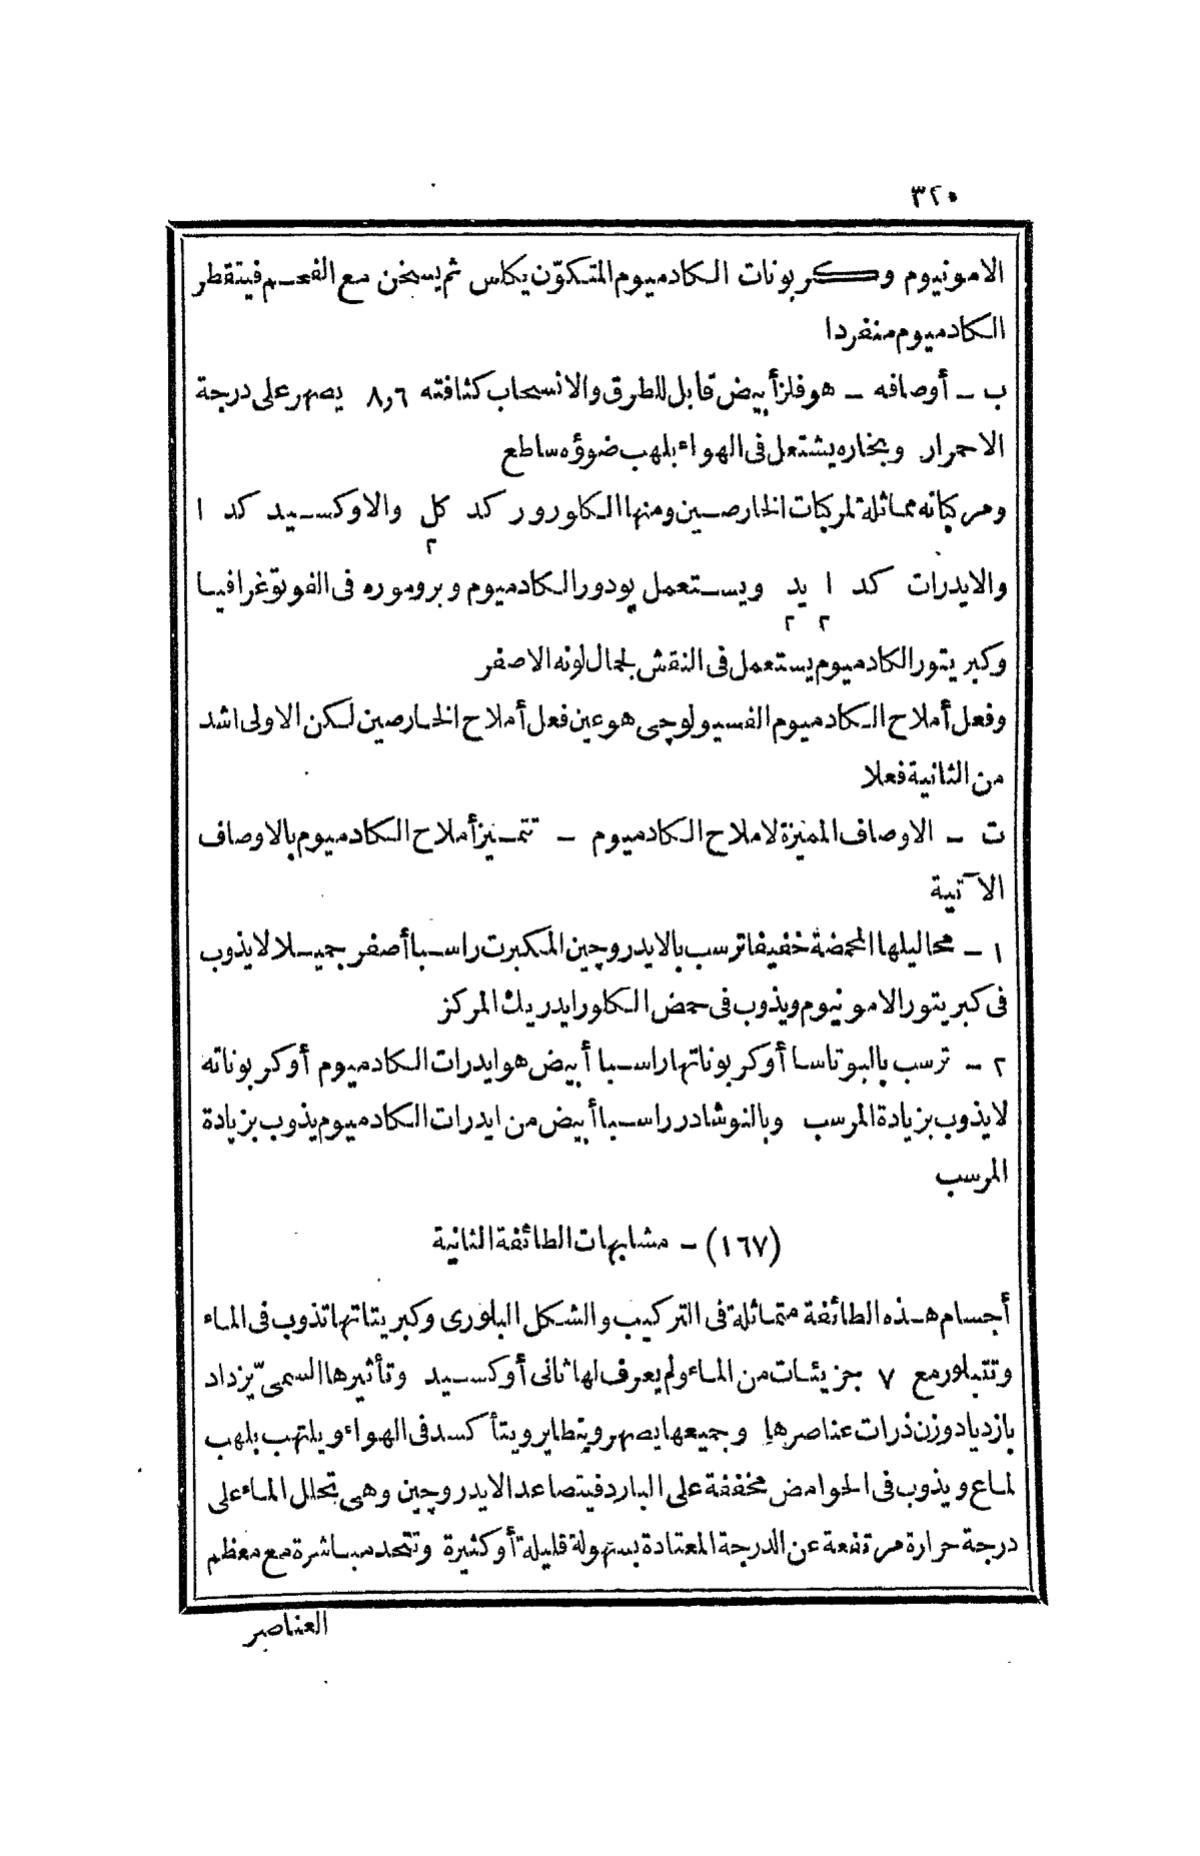 ٣٢٠
الامونيوم وكربونات الكادميوم المتكوّن يكلس ثم يسخن مع الفحم فيتقطر
الكادميوم منفردا
ب ـ أوصافه ـ هو فلز أبيض قابل للطرق والانسحاب كثافته ٨٫٦ يصهر على درجة
الاحمرار وبخاره يشتعل فى الهواء بلهب ضوؤه ساطع
ومركباته مماثلة لمركبات الخارصين ومنها الكلورور كد كل٢ والاوكسيد كد ا
والايدرات كد ا٢ يد٢ ويستعمل يودور الكادميوم وبروموره فى الفوتوغرافيا
وكبريتور الكادميوم يستعمل فى النقش لجمال لونه الاصفر
وفعل أملاح الكادميوم الفسيولوجى هو عين فعل أملاح الخارصين لكن الاولى اشد
من الثانية فعلا
ت ـ الاوصاف المميزة لاملاح الكادميوم ـ تتميز أملاح الكادميوم بالاوصاف
الآتية
١ ـ محاليلها المحمضة خفيفا ترسب بالايدروچين المكبرت راسبا أصفر جميلا لايذوب
فى كبريتور الامونيوم ويذوب فى حمض الكلورايدريك المركز
٢ ـ ترسب بالبوتاسا أوكربوناتها راسبا أبيض هو ايدرات الكادميوم أوكربوناته
لايذوب بزيادة المرسب وبالنوشادر راسبا أبيض من ايدرات الكادميوم يذوب بزيادة
المرسب
(١٦٧) ـ مشابهات الطائفة الثانية
أجسام هذه الطائفة متماثلة فى التركيب والشكل البلورى وكبريتاتها تذوب فى الماء
وتتبلور مع ٧ جزيئات من الماء ولم يعرف لها ثانى أوكسيد وتأثيرها السمىّ يزداد
بازدياد وزن ذرات عناصرها وجميعها يصهر ويتطاير ويتأكسد فى الهواء ويلتهب بلهب
لماع ويذوب فى الحوامض مخففة على البارد فيتصاعد الايدروچين وهى تحلل الماء على
درجة حرارة مرتفعة عن الدرجة المعتادة بسهولة قليلة أوكثيرة وتتحد مباشرة مع معظم
العناصر